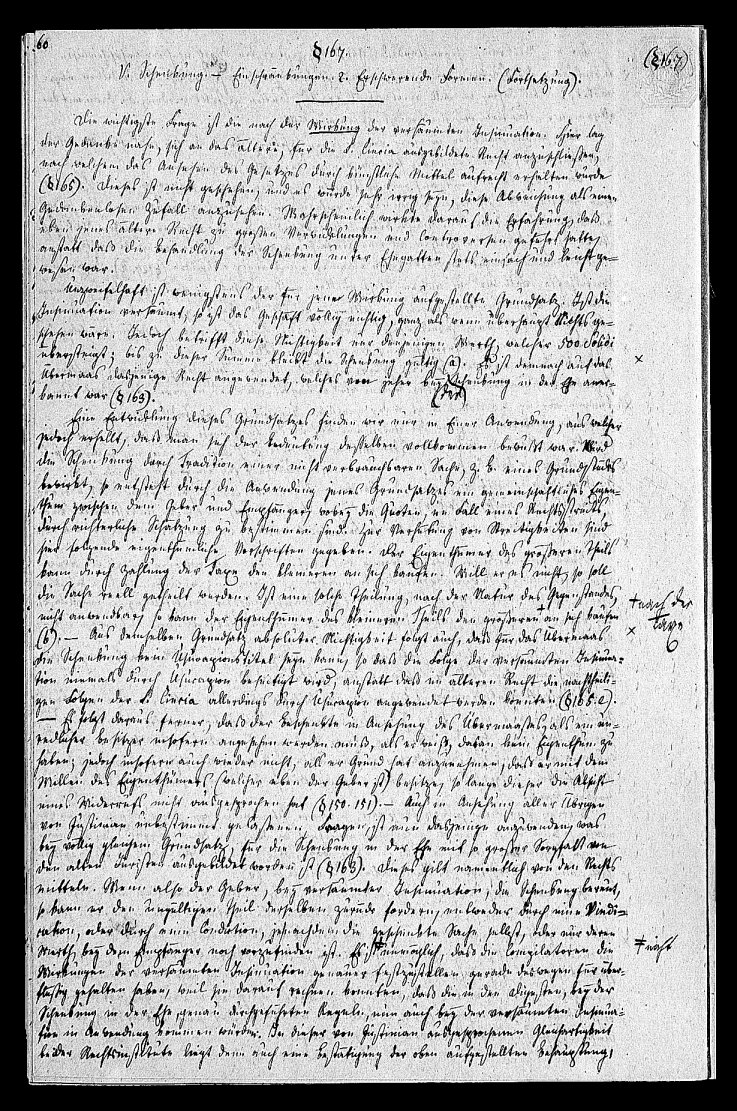 60
§ 167.
(§ 167)
V. Schenkung. – Einschränkungen. 2. Erschwerende Formen. (Fortsetzung).
Die wichtigste Frage ist die nach der Wirkung der versäumten Insinuation. Hier lag
der Gedanke nahe, sich an das ältere, für die L. Cincia ausgebildete Recht anzuschließen,
nach welchem das Ansehen des Gesetzes durch künstliche Mittel aufrecht erhalten wurde
(§ 165). Dieses ist nicht geschehen, und es würde sehr irrig seyn, diese Abweichung als einen
gedankenlosen Zufall anzusehen. Wahrscheinlich wirkte darauf die Erfahrung, daß
eben jenes ältere Recht zu großen Verwicklungen und Controversen geführt hatte,
anstatt daß die Behandlung der Schenkung unter Ehegatten stets einfach und leicht ge-
wesen war.
Unzweifelhaft ist wenigstens der für jene Wirkung aufgestellte Grundsatz. Ist die
Insinuation versäumt, so ist das Geschäft völlig nichtig, ganz als wenn überhaupt Nichts ge-
schehen wäre. Jedoch betrifft diese Nichtigkeit nur denjenigen Werth, welcher 500 Solidi
übersteigt; bis zu dieser Summe bleibt die Schenkung gültig (a). Es ist demnach auf das
Übermaas dasjenige Recht angewendet, welches von jeher bey Schenkung in der Ehe aner-
(der)
kannt war (§ 163).
Eine Entwicklung dieses Grundsatzes finden wir nur in Einer Anwendung, aus welcher
jedoch erhellt, daß man sich der Bedeutung desselben vollkommen bewußt war. Wird
die Schenkung durch Tradition einer nicht verbrauchbaren Sache, z. B. eines Grundstücks
bewirkt, so entsteht durch die Anwendung jenes Grundsatzes ein gemeinschaftliches Eigen-
thum zwischen dem Geber und Empfänger, wobey die Quoten, im Fall eines Rechtsstreits,
durch richterliche Schätzung zu bestimmen sind. Zur Verhütung von Streitigkeiten sind
hier folgende eigenthümliche Vorschriften gegeben. Der Eigenthümer des größeren Theils
kann durch Zahlung der Taxe den kleineren an sich kaufen. Will er es nicht, so soll
die Sache reell getheilt werden. Ist eine solche Theilung, nach der Natur des Gegenstandes
nicht anwendbar, so kann der Eigenthümer des kleineren Theils den größeren an sich kaufen
+ nach der
Taxe
(b). – Aus demselben Grundsatz absoluter Nichtigkeit folgt auch, daß für das Übermaas
die Schenkung kein Usucapionstitel seyn kann, so daß die Folge der versäumten Insinua-
tion niemals durch Usucapion beseitigt wird, anstatt daß im älteren Recht die nachtheili-
gen Folgen der L. Cincia allerdings durch Usucapion abgewendet werden konnten (§ 165. c).
– Es folgt daraus ferner, daß der Beschenkte in Ansehung des Übermaaßes als ein un-
redlicher Besitzer insofern angesehen werden muß, als er weiß, daran kein Eigenthum zu
haben; jedoch insofern auch wieder nicht, als er Grund hat anzunehmen, daß er mit dem
Willen des Eigenthümers (welcher eben der Geber ist) besitze, so lange dieser die Absicht
eines Widerrufs nicht ausgesprochen hat (§ 150. 151). – Auch in Ansehung aller übrigen
von Justinian unbestimmt gelassenen Fragen, ist nun dasjenige anzuwenden, was
bey völlig gleichem Grundsatz, für die Schenkung in der Ehe mit so großer Sorgfalt von
den alten Juristen ausgebildet worden ist (§ 163). Dieses gilt namentlich von den Rechts
mitteln. Wenn also der Geber, bey versäumter Insinuation, die Schenkung bereut,
so kann er den ungültigen Theil derselben zurück fordern, entweder durch eine Vindi-
cation, oder durch eine Condiction, jenachdem die geschenkte Sache selbst, oder nur deren
Werth bey dem Empfänger noch vorzufinden ist. Es ist unmöglich, daß die Compilatoren die
# nicht
Wirkungen der versäumten Insinuation genauer festzustellen, gerade deswegen für über-
flüssig gehalten haben, weil sie darauf rechnen konnten, daß die in den Digesten, bey der
Schenkung in der Ehe, genau durchgeführten Regeln, nun auch bey der versäumten Insinua-
tion in Anwendung kommen würden. In dieser von Justinian ausgesprochenen Gleichartigkeit
beider Rechtsinstitute liegt denn auch eine Bestätigung der oben aufgestellten Behauptung,